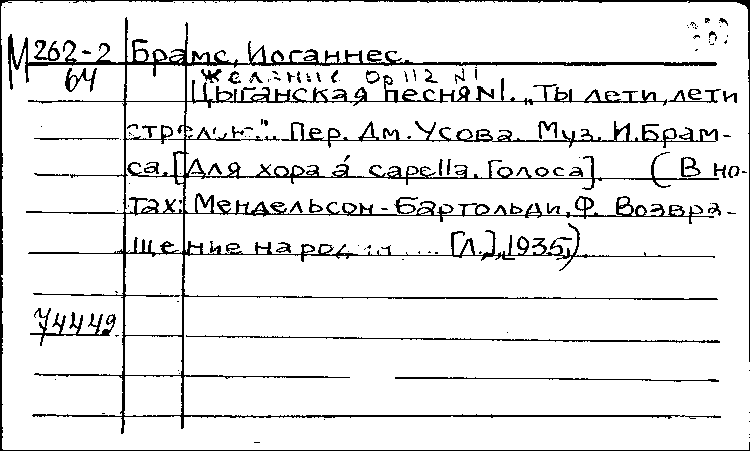 М 262-2 Брамс, Иоганнес.
64 Желание Op 112 N1
Цыганская песня N1. „Ты лети, лети
Пер. Дм. Усова. Муз. И. Брам-
са. [Для хора á capella. Голоса]. (В но-
тах: Мендельсон-Бартольди, Ф. Возвра-
щение ... [Л.], „1935„).
74449